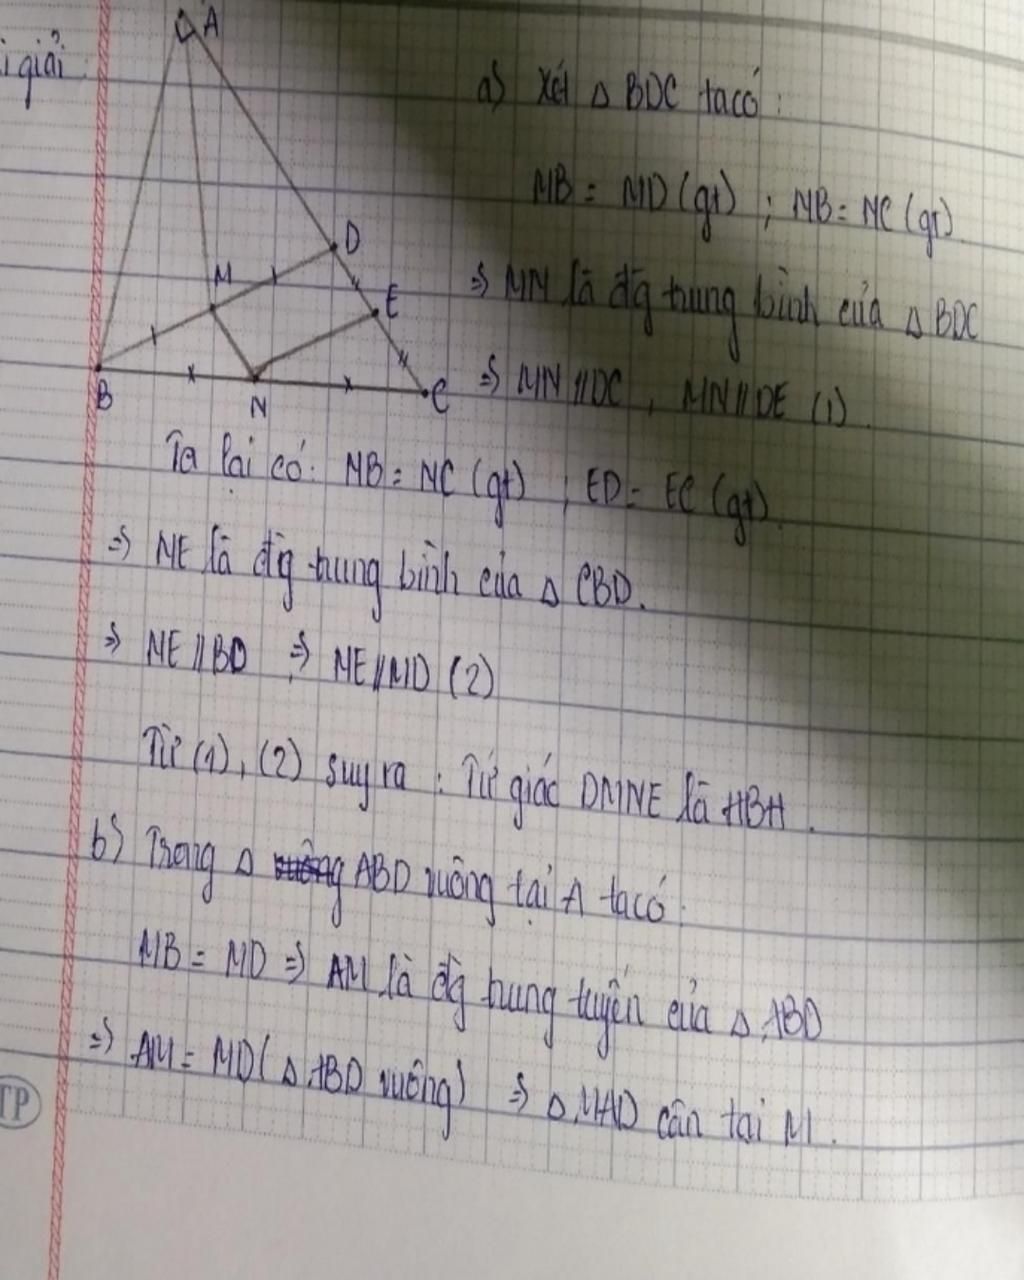 i giải
A
a) Xét △ BDC ta có :
MB = MD (gt) ; NB = NC (gt).
D
M
E
⇒ MN là đg trung bình của △ BDC
B
N
C
⇒ MN // DC , MN // DE (1).
Ta lại có: NB = NC (gt) , ED = EC (gt).
⇒ NE là đg trung bình của △ CBD.
⇒ NE // BD ⇒ NE // MD (2)
Từ (1), (2) suy ra : Tứ giác DMNE là HBH .
b) Trong △ vuông ABD vuông tại A ta có :
MB = MD ⇒ AM là đg trung tuyến của △ ABD
⇒ AM = MD ( △ ABD vuông) ⇒ △ MAD cân tại M .
TP